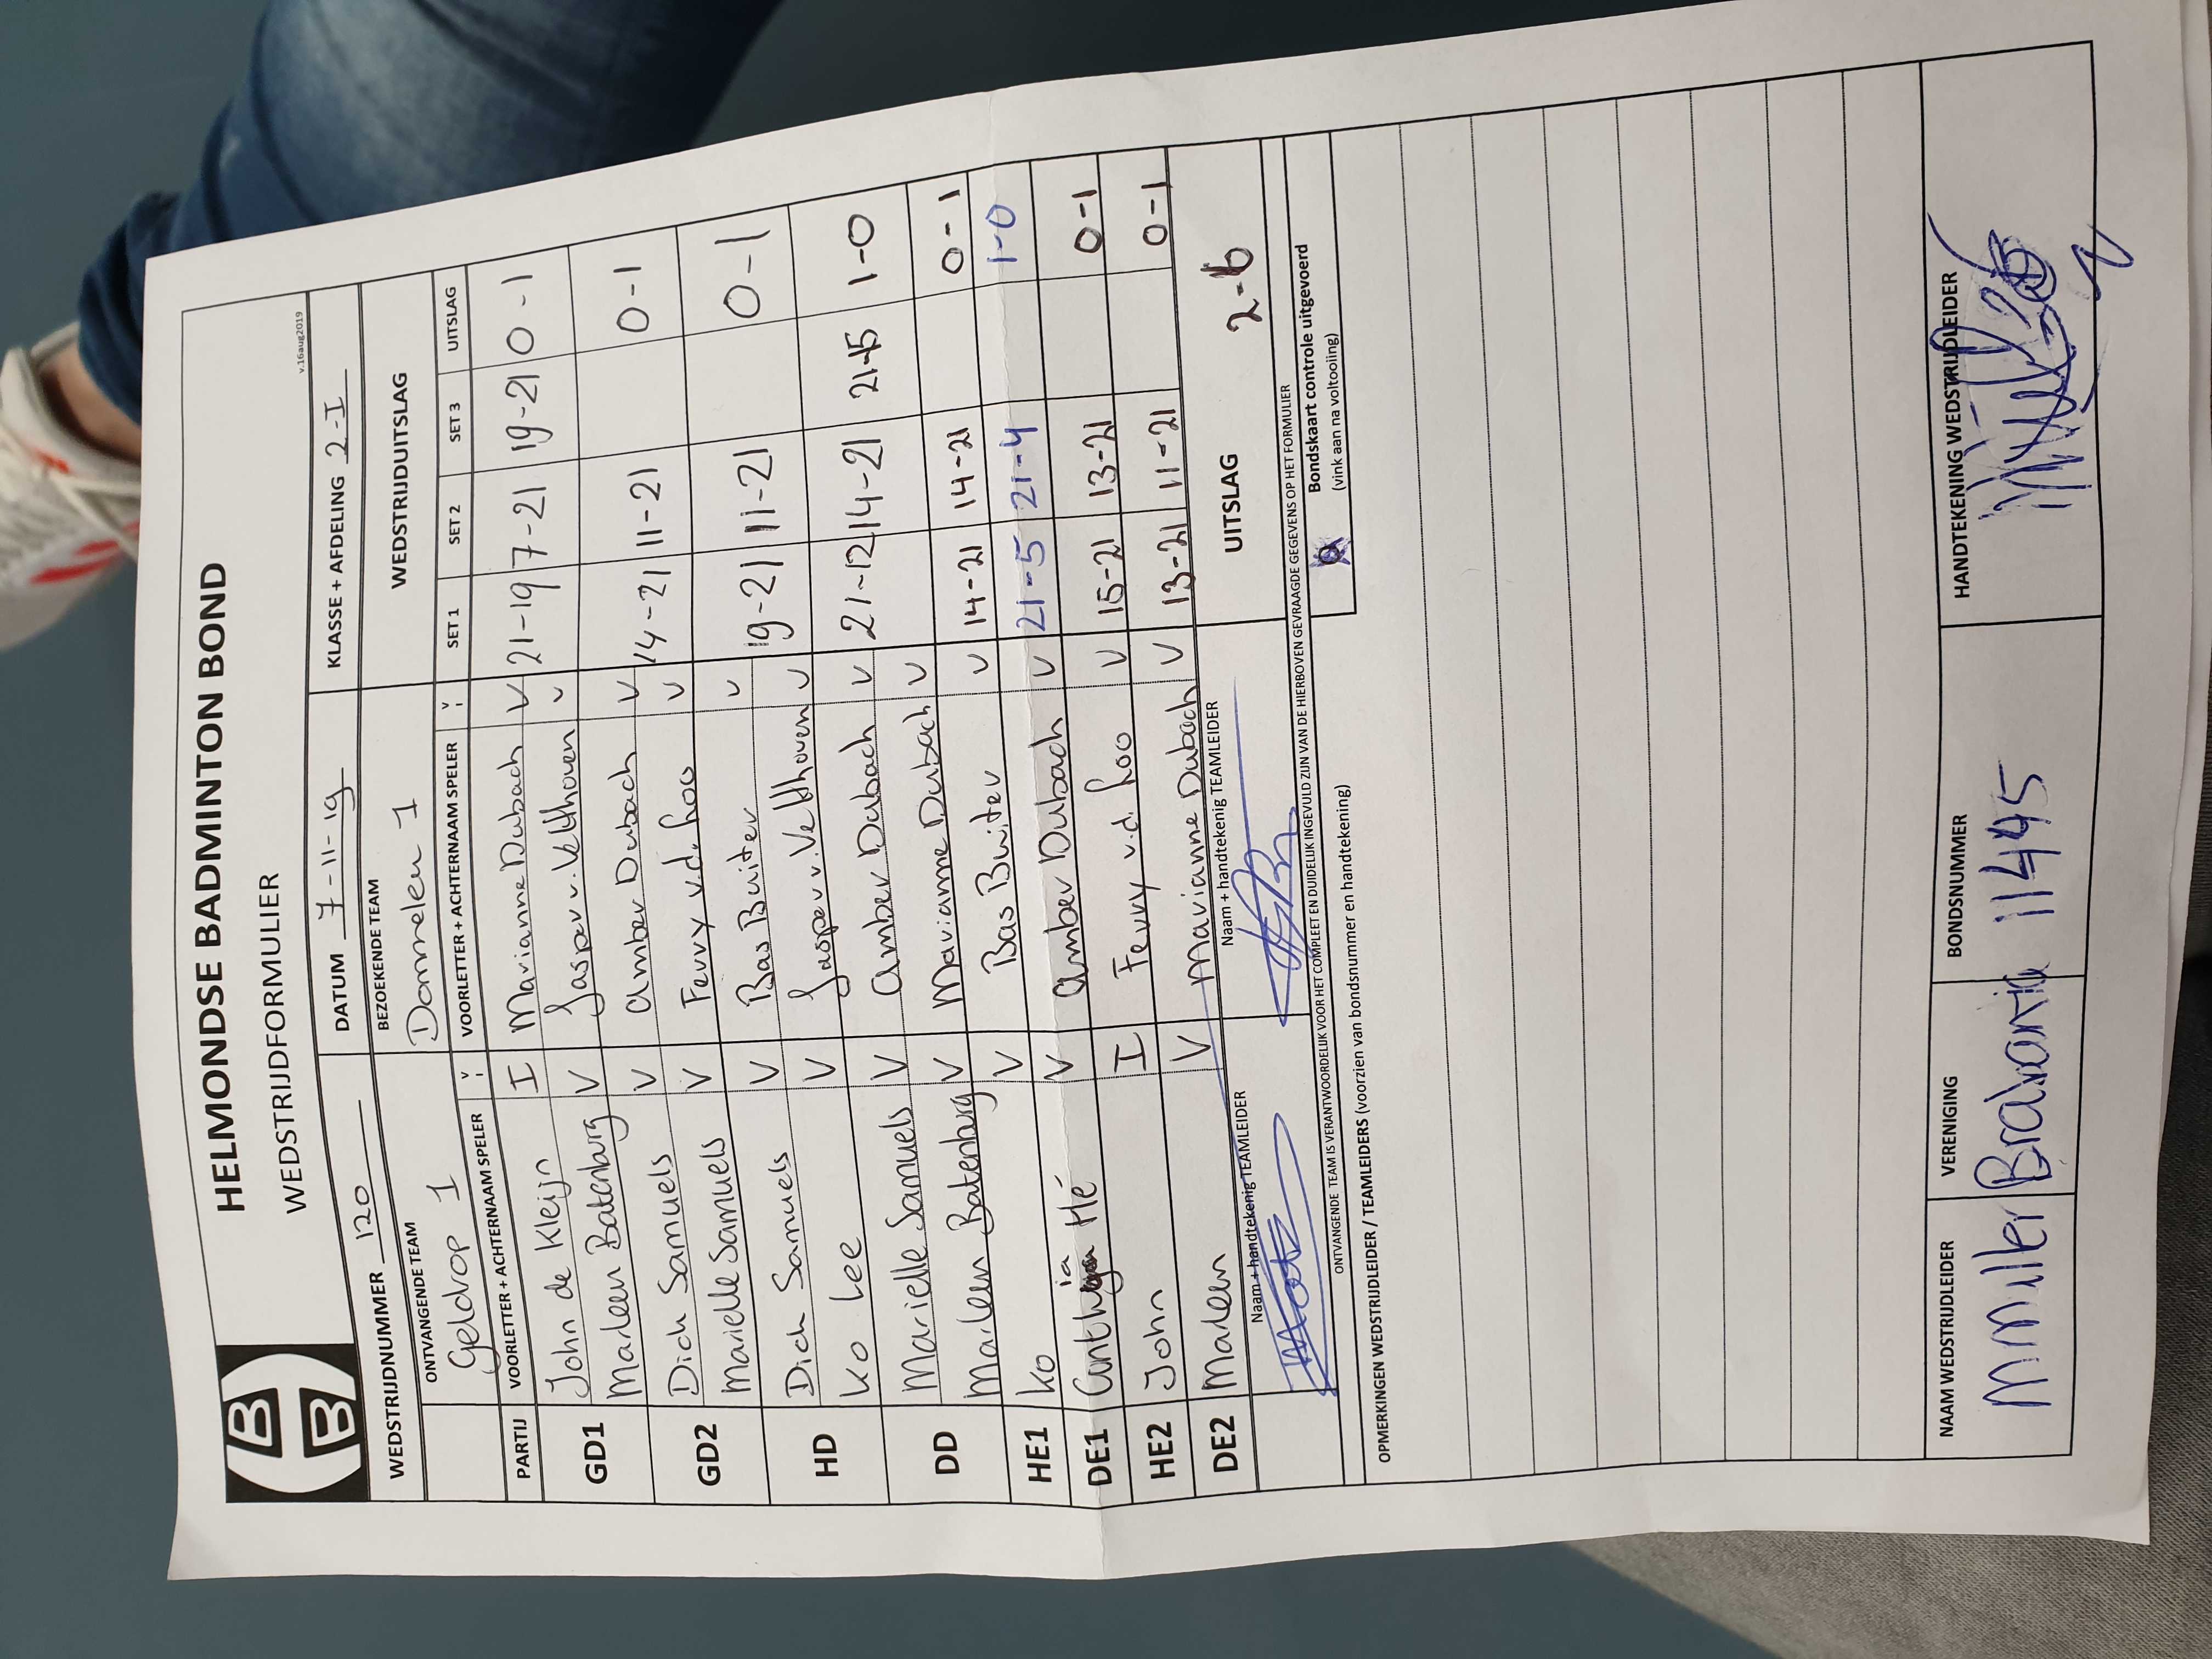 HELMONDSE BADMINTON BOND
WEDSTRIJDFORMULIER
v.16aug2019
WEDSTRIJDNUMMER 120 DATUM 7-11-19 KLASSE + AFDELING 2-I
ONTVANGENDE TEAM BEZOEKENDE TEAM WEDSTRIJDUITSLAG
Geldrop 1 Dommelen 1
PARTIJ VOORLETTER + ACHTERNAAM SPELER V I VOORLETTER + ACHTERNAAM SPELER V I SET 1 SET 2 SET 3 UITSLAG
GD1 John de Kleijn I Marianne Dubach V 21-19 7-21 19-21 0-1
Marleen Batenburg V Jasper v. Velthoven V
GD2 Dick Samuels V Amber Dubach V 14-21 11-21 0-1
Marielle Samuels V Ferry v.d. Loo V
HD Dick Samuels V Bas Buiter V 19-21 11-21 0-1
Ko Lee V Jasper v. Velthoven V
DD Marielle Samuels V Amber Dubach V 21-12 14-21 21-15 1-0
Marleen Batenburg V Marianne Dubach V
HE1 Ko V Bas Buiter V 14-21 14-21 0-1
DE1 Cinthia Hé V Amber Dubach V 21-5 21-4 1-0
HE2 John I Ferry v.d. Loo V 15-21 13-21 0-1
DE2 Marleen V Marianne Dubach V 13-21 11-21 0-1
Naam + handtekenig TEAMLEIDER Naam + handtekenig TEAMLEIDER UITSLAG 2-6
ONTVANGENDE TEAM IS VERANTWOORDELIJK VOOR HET COMPLEET EN DUIDELIJK INGEVULD ZIJN VAN DE HIERBOVEN GEVRAAGDE GEGEVENS OP HET FORMULIER
Bondskaart controle uitgevoerd
(vink aan na voltooiing)
OPMERKINGEN WEDSTRIJDLEIDER / TEAMLEIDERS (voorzien van bondsnummer en handtekening)
NAAM WEDSTRIJDLEIDER VERENIGING BONDSNUMMER HANDTEKENING WEDSTRIJDLEIDER
M Miller Brabantia 11445